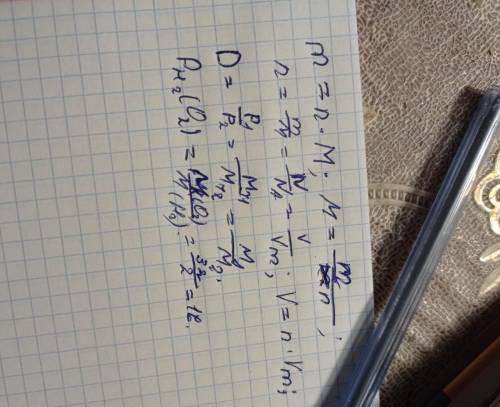 m = n · M; M = m/n;
n = m/M = N/N_A = V/V_m; V = n · V_m;
D = ρ₁/ρ₂ = M_{r1}/M_{r2} = M₁/M₂;
D_{H₂}(O₂) = M(O₂)/M(H₂) = 32/2 = 16.